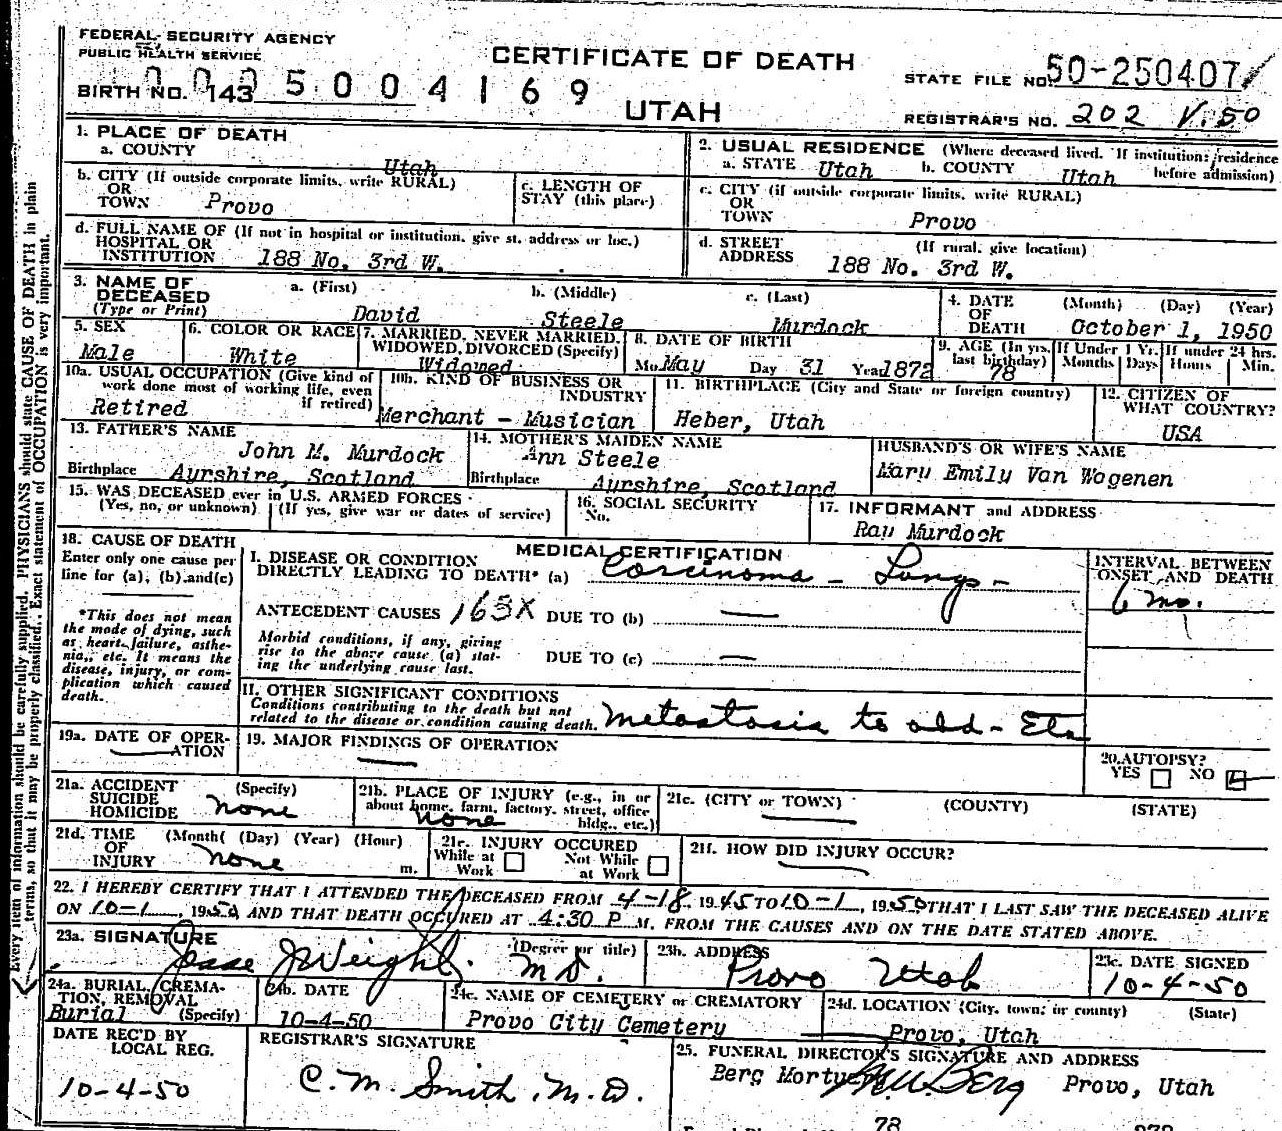 FEDERAL SECURITY AGENCY
PUBLIC HEALTH SERVICE
CERTIFICATE OF DEATH
STATE FILE NO. 50-250407
BIRTH NO. 143 5 0 0 4 1 6 9
UTAH
REGISTRAR'S NO. 202 V.50
1. PLACE OF DEATH
a. COUNTY Utah
2. USUAL RESIDENCE (Where deceased lived. If institution: residence before admission)
a. STATE Utah b. COUNTY Utah
b. CITY (If outside corporate limits, write RURAL) OR TOWN Provo
c. LENGTH OF STAY (this place)
c. CITY (if outside corporate limits, write RURAL) OR TOWN Provo
d. FULL NAME OF (If not in hospital or institution, give st. address or loc.) HOSPITAL OR INSTITUTION 188 No. 3rd W.
d. STREET ADDRESS (If rural, give location) 188 No. 3rd W.
3. NAME OF DECEASED (Type or Print)
a. (First) David b. (Middle) Steele c. (Last) Murdock
4. DATE OF DEATH (Month) (Day) (Year) October 1, 1950
5. SEX Male
6. COLOR OR RACE White
7. MARRIED, NEVER MARRIED, WIDOWED, DIVORCED (Specify) Widowed
8. DATE OF BIRTH Mo. May Day 31 Year 1872
9. AGE (In yrs. last birthday) 78
If Under 1 Yr. Months Days
If under 24 hrs. Hours Min.
10a. USUAL OCCUPATION (Give kind of work done most of working life, even if retired) Retired
10b. KIND OF BUSINESS OR INDUSTRY Merchant - Musician
11. BIRTHPLACE (City and State or foreign country) Heber, Utah
12. CITIZEN OF WHAT COUNTRY? USA
13. FATHER'S NAME John M. Murdock
Birthplace Ayrshire, Scotland
14. MOTHER'S MAIDEN NAME Ann Steele
Birthplace Ayrshire, Scotland
HUSBAND'S OR WIFE'S NAME
Mary Emily Van Wagenen
15. WAS DECEASED ever in U.S. ARMED FORCES
(Yes, no, or unknown) (If yes, give war or dates of service)
16. SOCIAL SECURITY No.
17. INFORMANT and ADDRESS
Ray Murdock
18. CAUSE OF DEATH
Enter only one cause per line for (a), (b) and (c)
*This does not mean the mode of dying, such as heart failure, asthenia, etc. It means the disease, injury, or complication which caused death.
MEDICAL CERTIFICATION
I. DISEASE OR CONDITION DIRECTLY LEADING TO DEATH* (a) Carcinoma - Lungs -
ANTECEDENT CAUSES 163X DUE TO (b) —
Morbid conditions, if any, giving rise to the above cause (a) stating the underlying cause last.
DUE TO (c) —
INTERVAL BETWEEN ONSET AND DEATH
6 mo.
II. OTHER SIGNIFICANT CONDITIONS
Conditions contributing to the death but not related to the disease or condition causing death. Metastasis to abd - Etc
19a. DATE OF OPERATION —
19. MAJOR FINDINGS OF OPERATION
—
20. AUTOPSY?
YES NO
21a. ACCIDENT SUICIDE HOMICIDE (Specify) none
21b. PLACE OF INJURY (e.g., in or about home, farm, factory, street, office bldg., etc.) none
21c. (CITY or TOWN) — (COUNTY) (STATE)
21d. TIME OF INJURY (Month) (Day) (Year) (Hour) none m.
21e. INJURY OCCURED
While at Work Not While at Work
21f. HOW DID INJURY OCCUR? —
22. I HEREBY CERTIFY THAT I ATTENDED THE DECEASED FROM 4-18, 1945 TO 10-1, 1950 THAT I LAST SAW THE DECEASED ALIVE
ON 10-1, 1950 AND THAT DEATH OCCURED AT 4:30 P M. FROM THE CAUSES AND ON THE DATE STATED ABOVE.
23a. SIGNATURE Jesse J Weight. (Degree or title) M.D.
23b. ADDRESS Provo Utah
23c. DATE SIGNED
10-4-50
24a. BURIAL, CREMATION, REMOVAL (Specify) Burial
24b. DATE
10-4-50
24c. NAME OF CEMETERY or CREMATORY
Provo City Cemetery
24d. LOCATION (City, town, or county) (State)
Provo, Utah
DATE REC'D BY LOCAL REG.
10-4-50
REGISTRAR'S SIGNATURE
C. M. Smith, M.D.
25. FUNERAL DIRECTOR'S SIGNATURE AND ADDRESS
Berg Mortuary Berg Provo, Utah
78
Every item of information should be carefully supplied. PHYSICIANS should state CAUSE OF DEATH in plain
terms, so that it may be properly classified. Exact statement of OCCUPATION is very important.